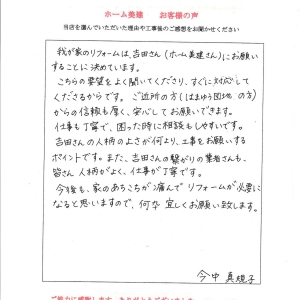 ホーム英建　お客様の声
当店を選んでいただいた理由や工事後のご感想をお聞かせください
我が家のリフォームは、吉田さん(ホーム英建さん)にお願い
することに決めています。
こちらの要望をよく聞いてくださり、すぐに対応して
くださるからです。ご近所の方(はまゆう団地の方)
からの信頼も厚く、安心してお願いできます。
仕事も丁寧で、困った時に相談もしやすいです。
吉田さんの人柄のよさが何より、工事をお願いする
ポイントです。また、吉田さんの繋がりの業者さんも、
皆さん人柄がよく、仕事が丁寧です。
今後も、家のあちこちが傷んでリフォームが必要に
なると思いますので、何卒宜しくお願い致します。
今中 真規子
ご協力に感謝します。ありがとうございました。